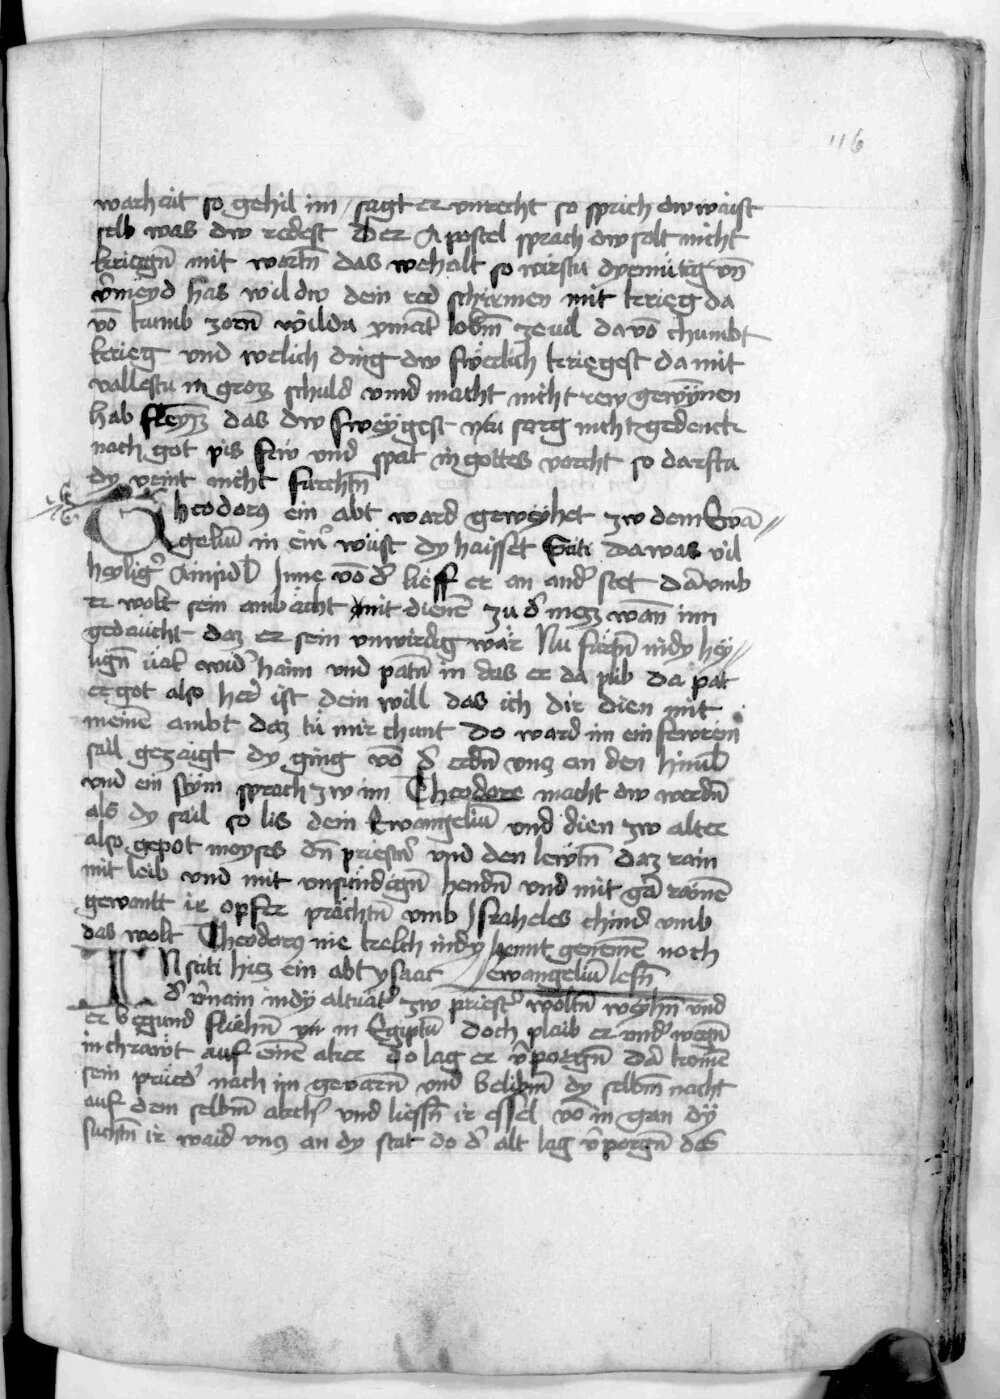 116
warhait so gehil im / sagt er vnrecht so sprich dw waist
selb was dw redest Der Apostel sprach dw solt nicht
kriegn̄ mit wortn̄ das wehalt so wirstu dyemütig vn̄
v̄meyd has wil dw dein red schirmen mit krieg da
vō kumb zorn̄ wildu ymāt lobm̄ ze vil davō chumbt
krieg vnd welich ding dw swerlich kriegest da mit
vallestu in gross schuld vnnd macht nicht rew gewȳnen
hab fleyss das dw sweygest vnd sorg nicht gedenck
nach got pis frw vnd spat in gottes vorcht so darfstu
dy veint nicht furchtn̄
Theodorus ein abt ward geweyhet zw dem Ewā//
geliū in einr̄ wüst dy haisset Sciti da was vil
heyliger ainsidl Inne vō der lieff er an andr̄ stet darvmb
er wolt sein ambācht nit dienē zu dr̄ mess wan̄ im
gedaücht daz er sein vnwirdig wär Nu fürtn̄ in dy hey//
lign̄ üät̄ widr̄ haim vnd patn̄ in das er da plib da pat
er got also her̄ ist dein will das ich dir dien mit
meinē ambt daz tü mir chunt Do ward im ein fewrein
sail gezaigt dy ging vō dr̄ erdn̄ vncz an den himl
vnd ein stym sprach zw im Theodore macht dw werdn̄
als dy sail so lis dein Ewangeliū vnd dien zw alter
also gepot moyses dn̄ priestn̄ vnd den lewitn̄ daz rain
mit leib vnd mit vnsündign̄ hendn̄ vnd mit gar̄ rainē
gewantt ir opfer prächtn̄ vmb Israheles chind vmb
das wolt Theodorus nie kelch in dy hennt genemē noch
IN sciti hies ein abt ysaac / ewangeliū lesn̄
dr̄ v̄nam in dy altvätr̄ zw priestr̄ woltn̄ weyhn̄ vnd
er begund fliehn̄ vn̄ in Egiptū doch plaib er vndr̄ wegn̄
in chrawt auf einē aker do lag er v̄porgn̄ da komē
sein prüedr̄ nach im gevarn̄ vnd belibm̄ dy selbm̄ nacht
auf dem selbm̄ akcher vnd liessn̄ ir essel vō in gan dy
suchtn̄ ir waid vncz an dy stat do dr̄ alt lag v̄porgn̄ das